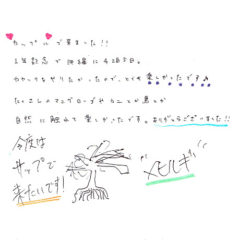 カップルで来ました!!
1年記念で沖縄に4泊5日。
カヤックをやりたかったので、とても楽しかったです♪
たくさんのマングローブやカニとか鳥とか
自然に触れて楽しかったです。ありがとうございました!!
今度は
サップで
来たいです!
"メヒルギ"